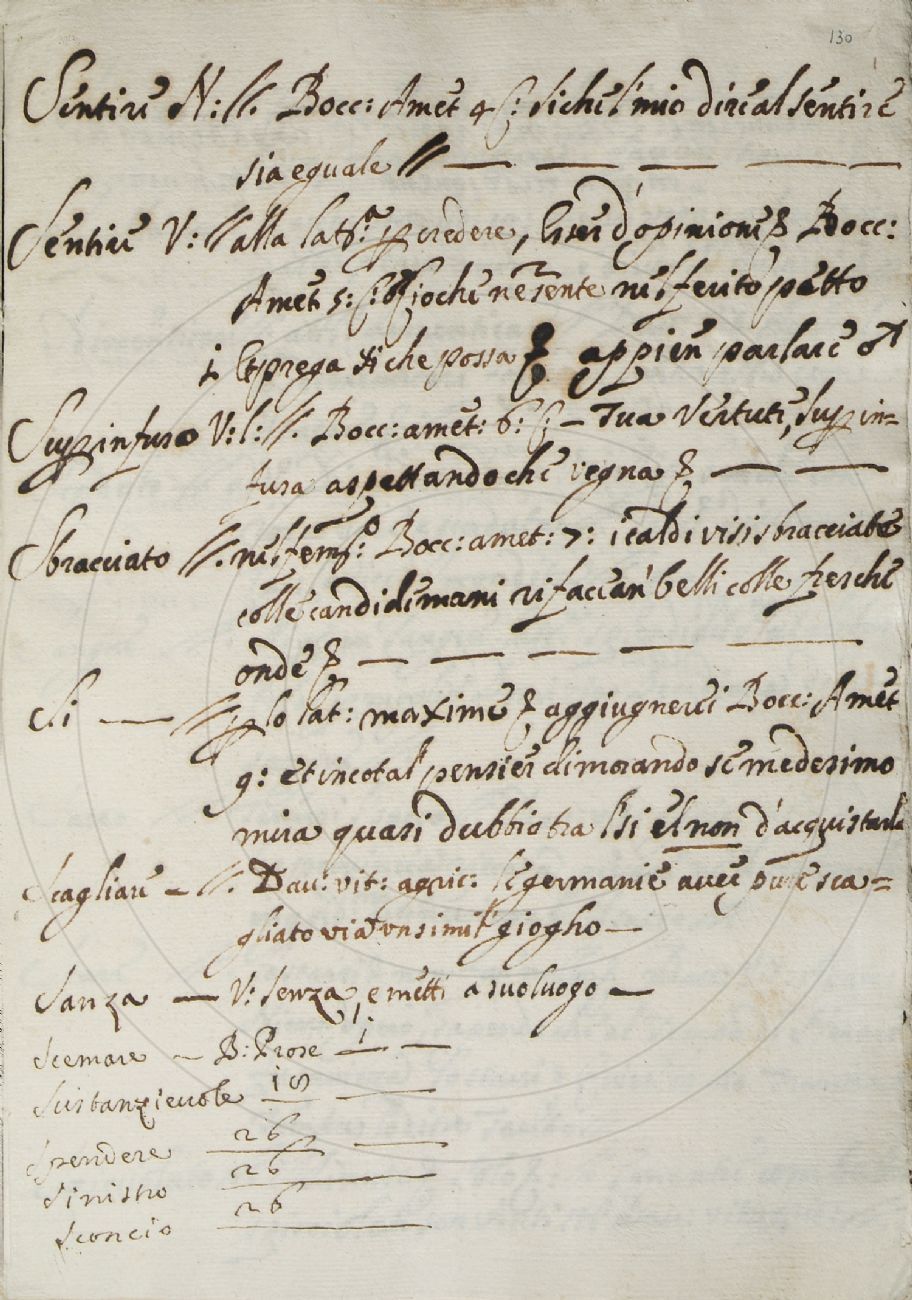 130
Sentire N: //. Bocc: Amet 4 siche l'mio dire al sentire
sia eguale //
Sentire V: // alla lat: p credere, d'opinione Bocc:
Amet 5: ioche ne sente nel ferito petto
prega che possa appien parlare
V: l: //. Bocc: amet: 6: Tua Vertute, sup in=
fusa aspettando che vegna
Sbracciato //. nel fem: Bocc: amet: 7: i caldi visi sbracciate
colle candide mani rifaccan' belli colle fresche
onde
Si // p lo lat: maxime aggiugnerci Bocc: Amet
9: et in cotal' pensier dimorando se medesimo
mira quasi dubbio tra l'si e'l non d'acquistarla
Scagliare //. Dav: vit: agric: le germanie aver pure sca=
gliato via un simil' giogho
Sanza V: senza, e metti a suo luogo
Scemare B: Prose 1
Sustanzievole 18
Spendere 26
Sinistro 26
Sconcio 26